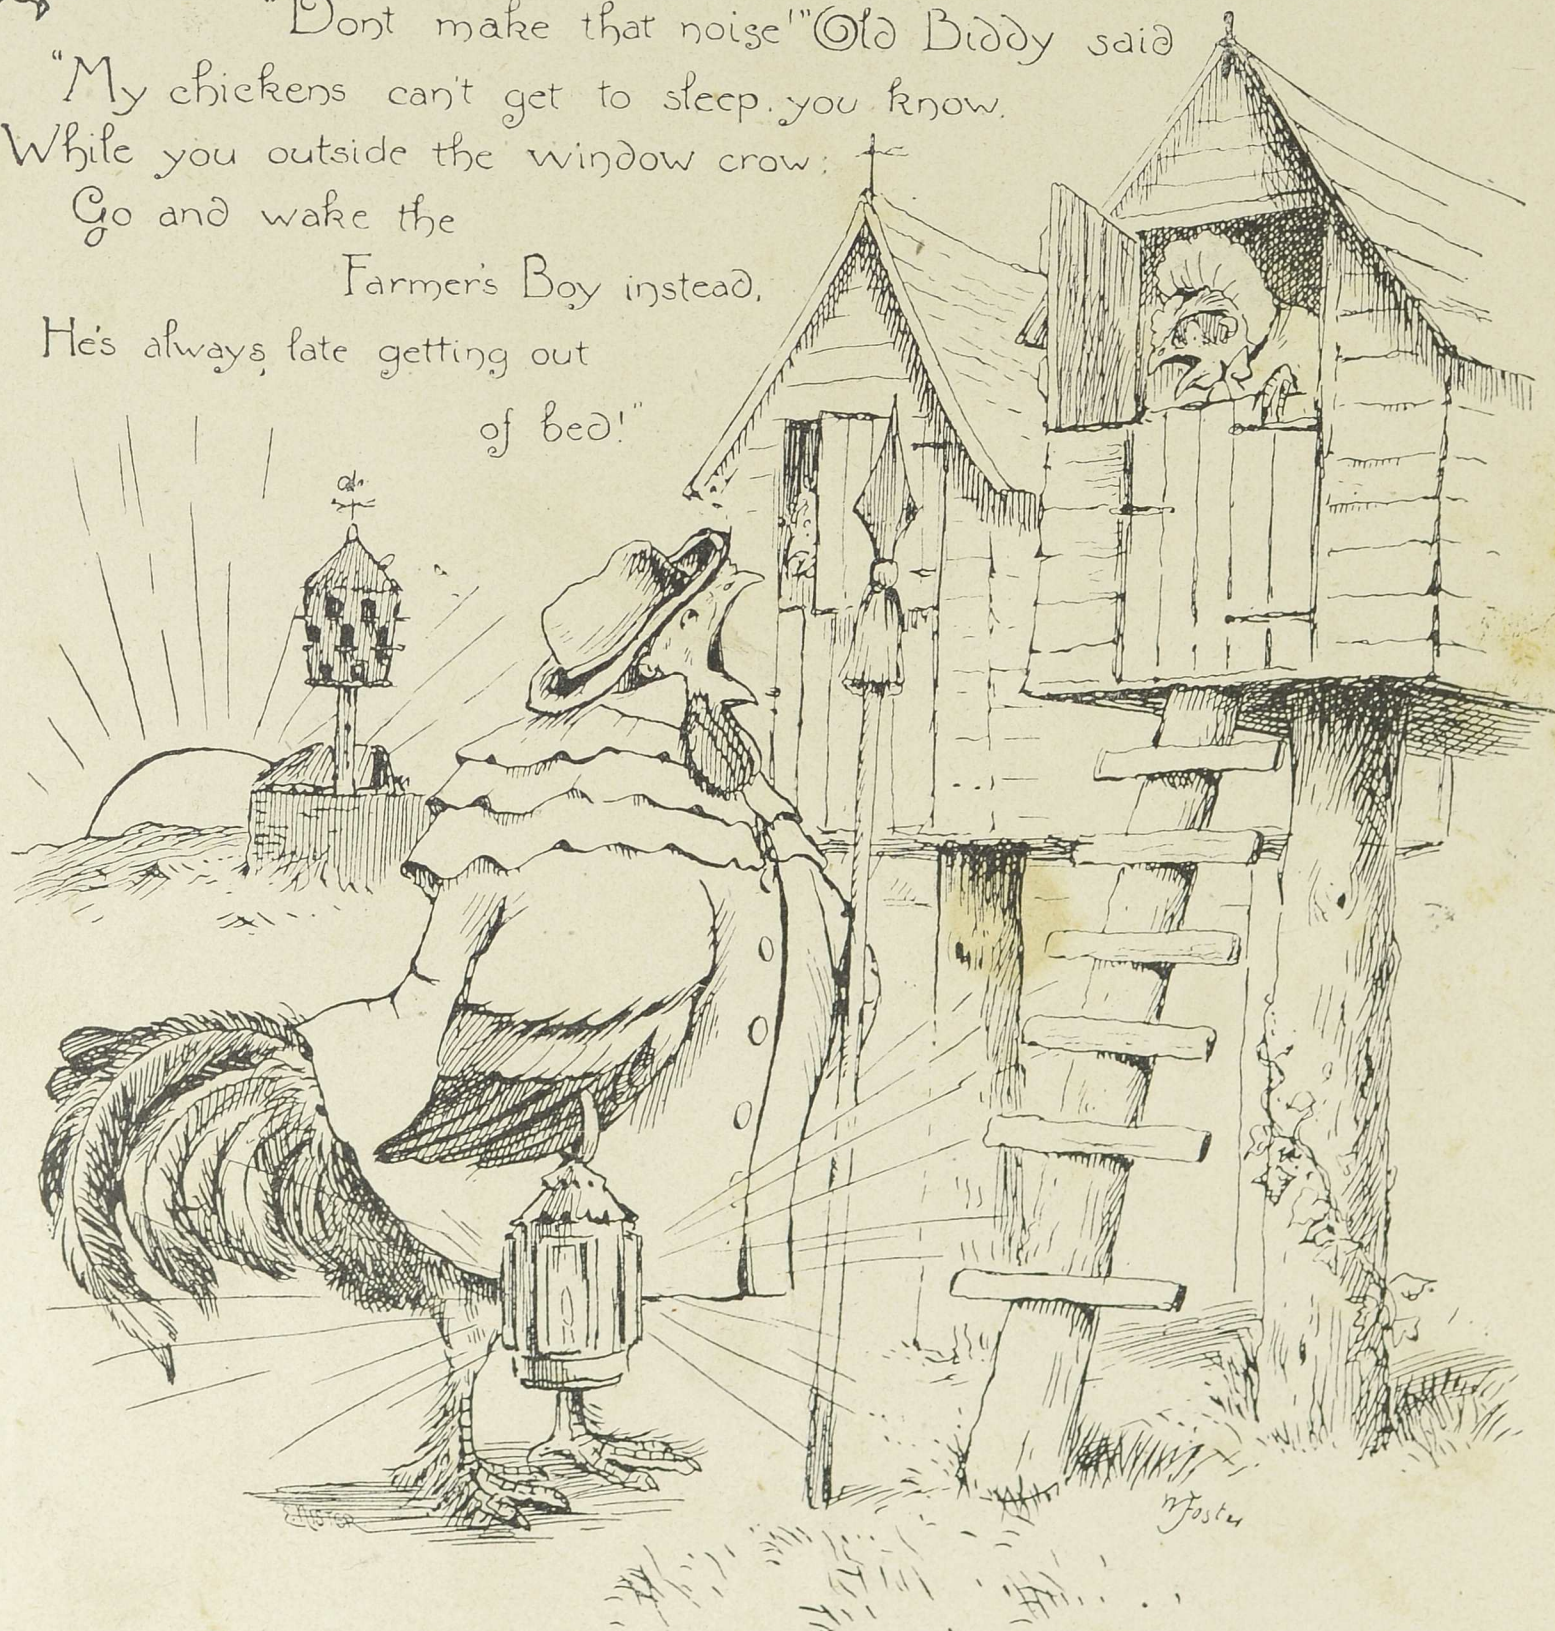 "Dont make that noise!" Old Biddy said
"My chickens can't get to sleep. you know.
While you outside the window crow:
Go and wake the
Farmer's Boy instead,
He's always late getting out
of bed!"
E. NISTER
W Foster